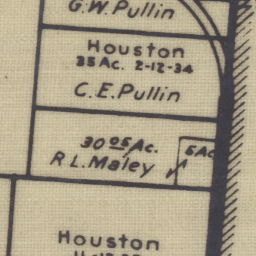 G.W. Pullin
Houston
35 Ac. 2-12-34
C.E. Pullin
30 05 Ac.
5 Ac
R L. Maley
Houston